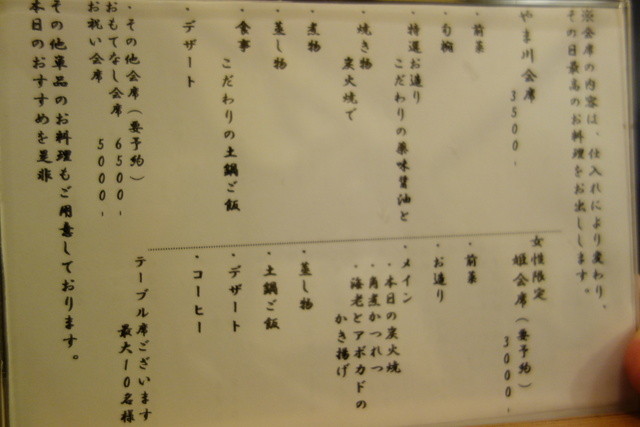 ※会席の内容は、仕入れにより変わり、
その日最高のお料理をお出しします。
やま川会席
3500-
・前菜
・旬椀
・特選お造り
こだわりの薬味醤油と
・焼き物
炭火焼で
・煮物
・蒸し物
・食事
こだわりの土鍋ご飯
・デザート
女性限定
姫会席(要予約)
3000-
・前菜
・お造り
・メイン
・本日の炭火焼
・角煮かつれつ
・海老とアボカドの
かき揚げ
・蒸し物
・土鍋ご飯
・デザート
・コーヒー
・その他会席(要予約)
おもてなし会席 6500-
お祝い会席 5000-
テーブル席ございます
最大10名様
その他単品のお料理もご用意しております。
本日のおすすめを是非